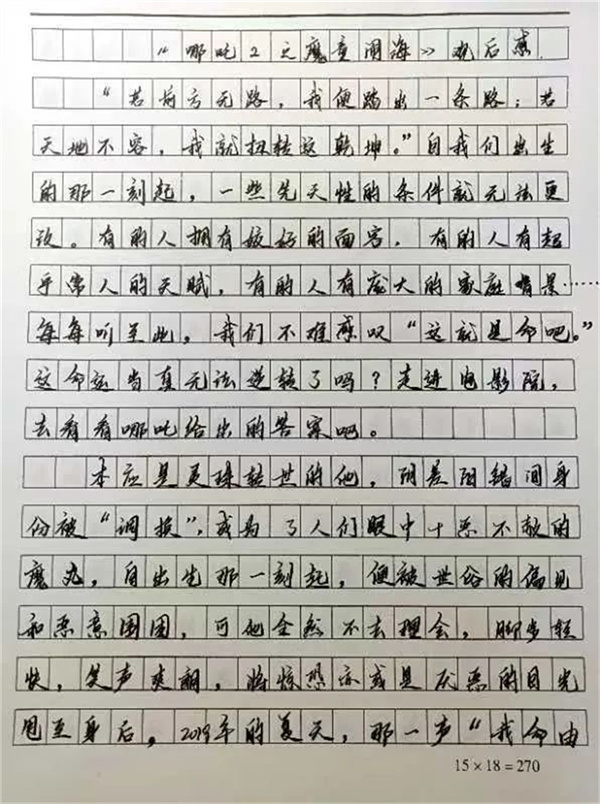 《哪吒2之魔童闹海》观后感
“若前方无路，我便踏出一条路；若
天地不容，我就扭转这乾坤。”自我们出生
的那一刻起，一些先天性的条件就无法更
改。有的人拥有姣好的面容，有的人有超
乎常人的天赋，有的人有庞大的家庭背景……
每每听至此，我们不难感叹“这就是命吧。”
这命运当真无法逆转了吗？走进电影院，
去看看哪吒给出的答案吧。
本应是灵珠转世的他，阴差阳错间身
份被“调换”，成为了人们眼中十恶不赦的
魔丸，自出生那一刻起，便被世俗的偏见
和恶意围困，可他全然不去理会，脚步轻
快，笑声爽朗，将惊恐亦或是厌恶的目光
甩至身后。2019年的夏天，那一声“我命由
15×18=270